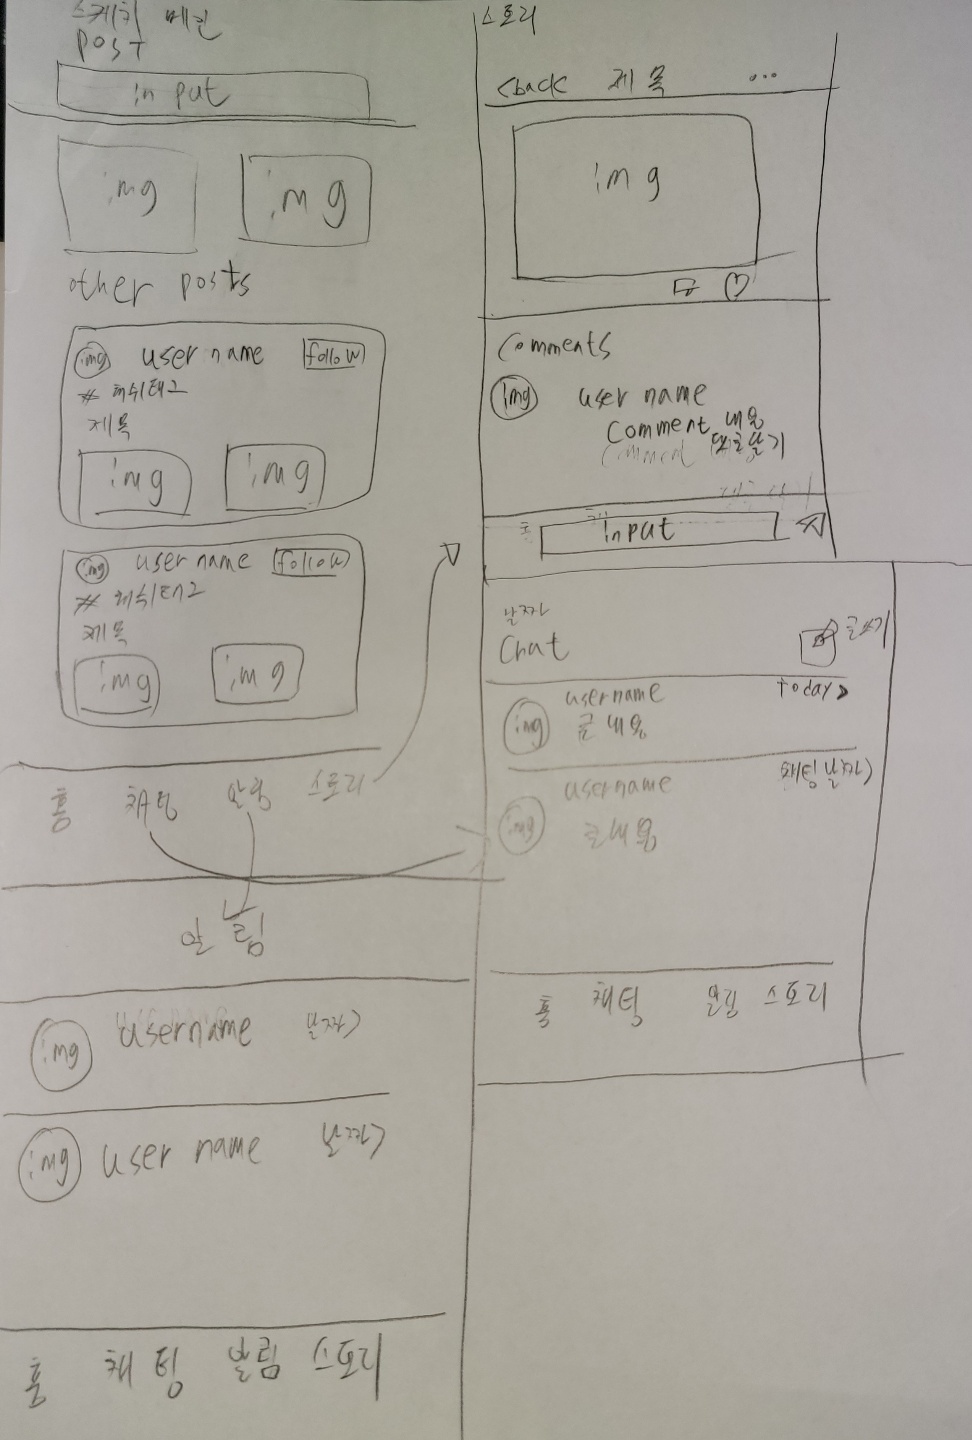 스케치 메인
post
input
img
img
other posts
img user name follow
# 해쉬태그
제목
img img
img user name follow
# 해쉬태그
제목
img img
홈 채팅 알림 스토리
알림
img username 날짜>
img user name 날짜>
홈 채팅 알림 스토리
스토리
<back 제목 ...
img
Comments
img user name
Comment 내용
Comment 댓글달기
input
날짜
Chat 글쓰기
username today>
img 글 내용
username 채팅날짜>
img 글내용
홈 채팅 알림 스토리